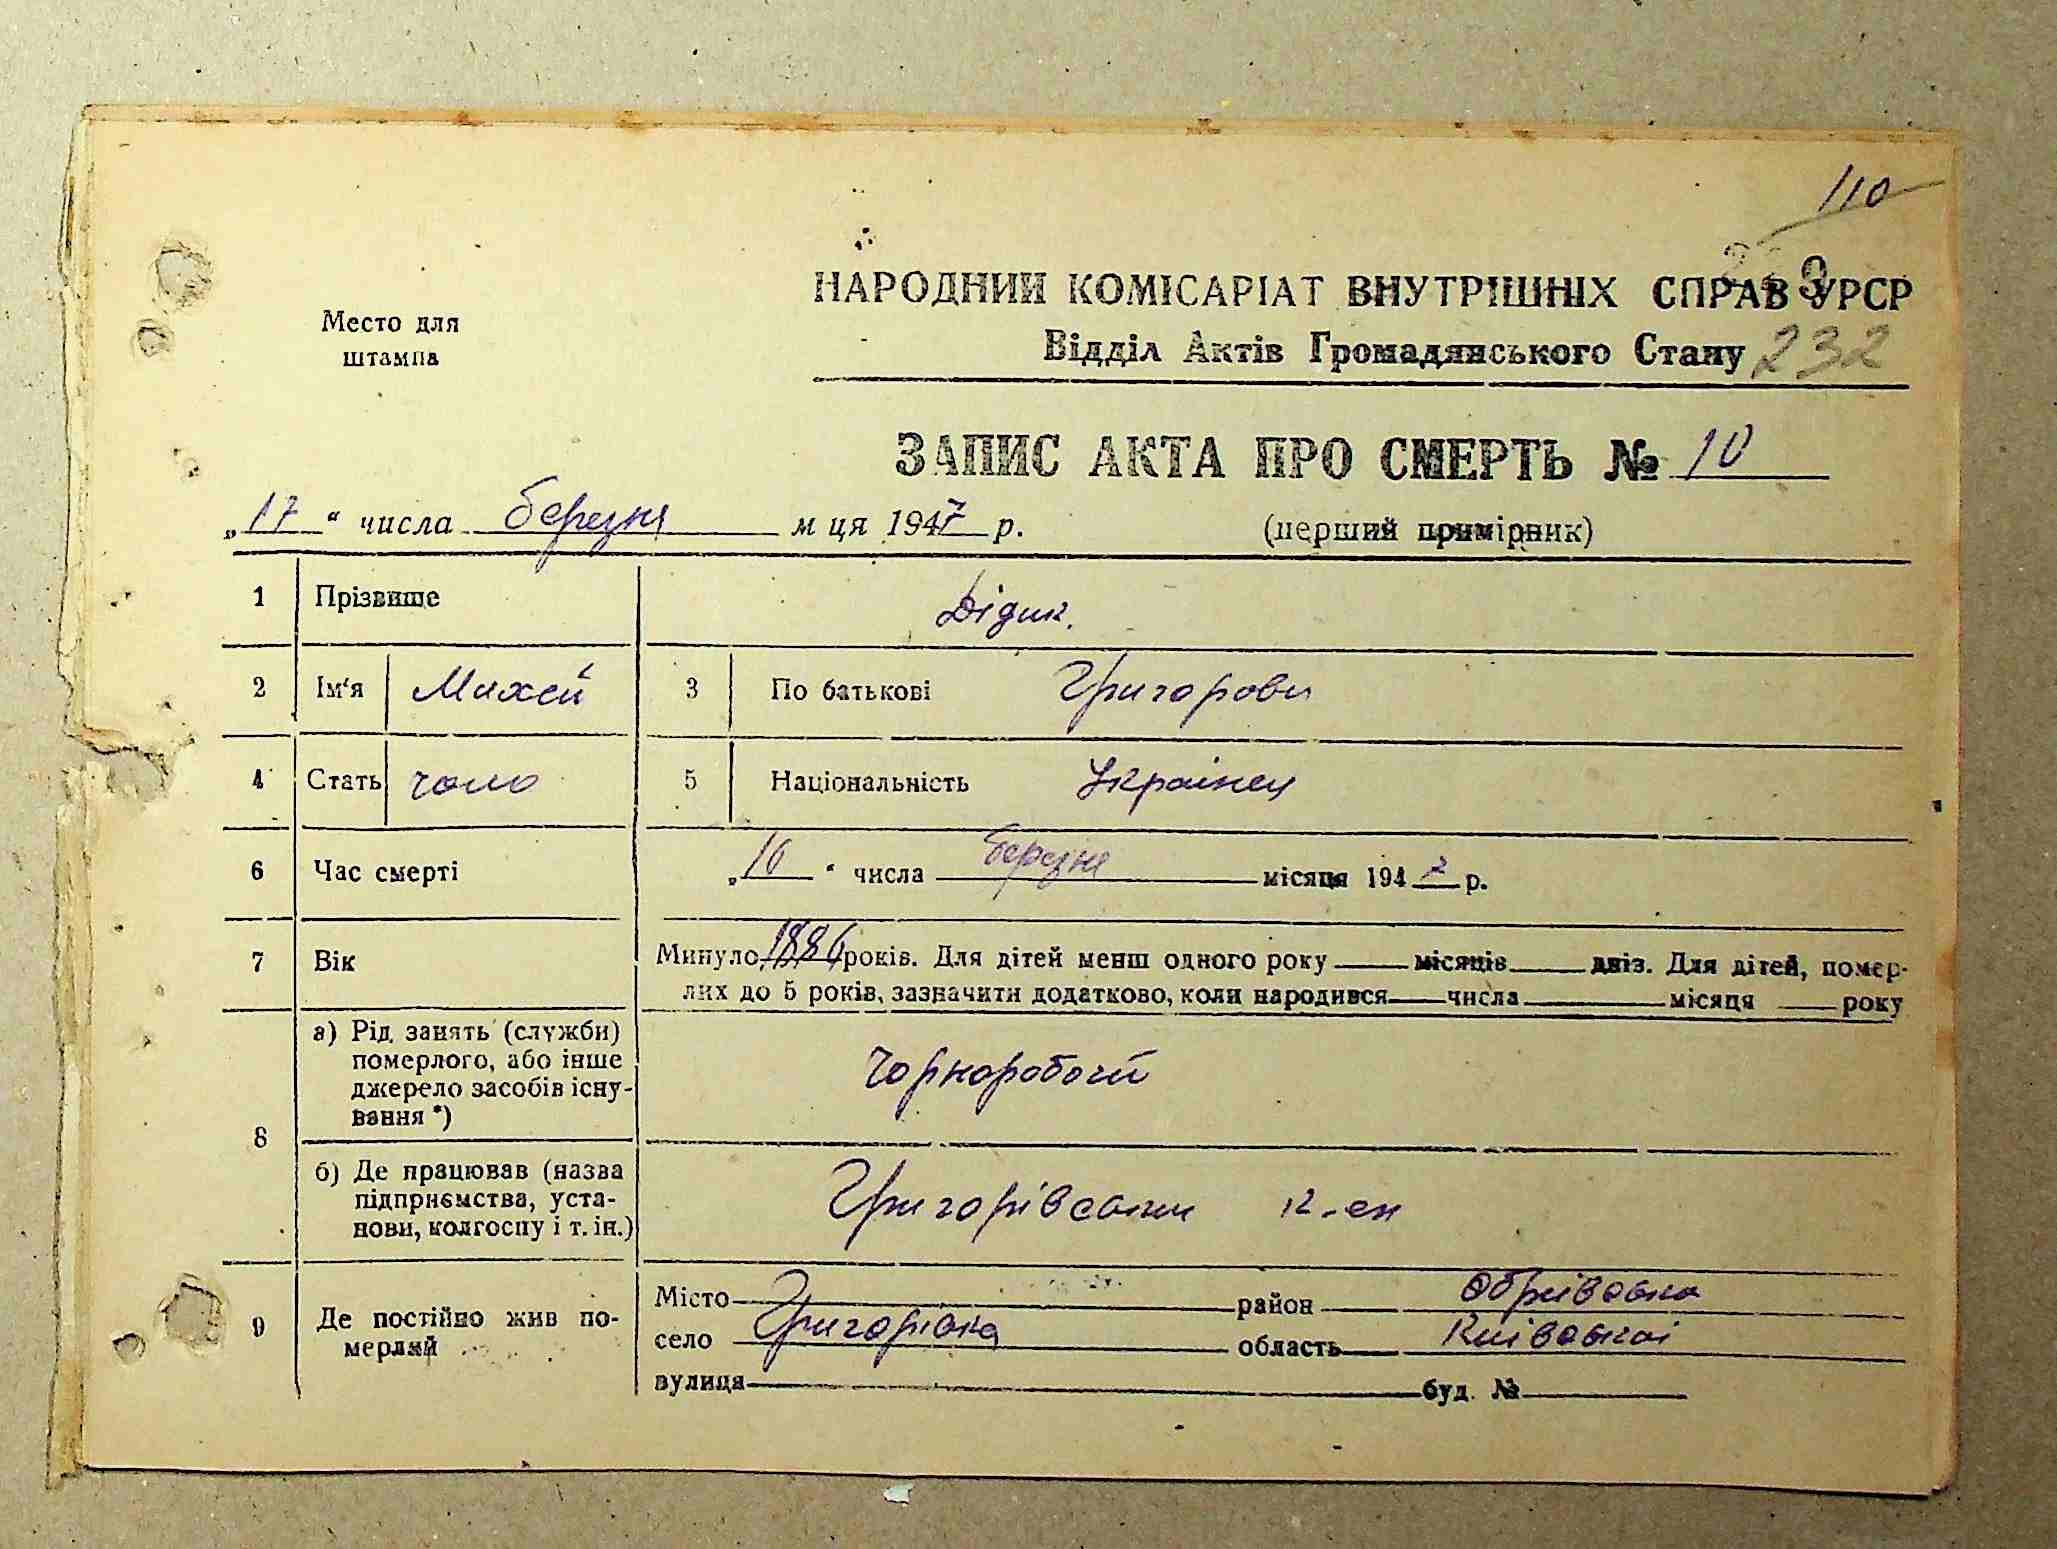 110
НАРОДНИЙ КОМІСАРІАТ ВНУТРІШНІХ СПРАВ УРСР
Место для
штампа
Відділ Актів Громадянського Стану 232
ЗАПИС АКТА ПРО СМЕРТЬ № 10
„17“ числа березня м ця 1947 р. (перший примірник)
1 Прізвище Дідик.
2 Ім'я Михей 3 По батькові Григорови
4 Стать чоло 5 Національність Українец
6 Час смерті „16“ числа березня місяця 1947 р.
7 Вік Минуло 1886 років. Для дітей менш одного року місяців днів. Для дітей, помер-
лих до 5 років, зазначити додатково, коли народився числа місяця року
8 а) Рід занять (служби)
померлого, або інше
джерело засобів існу-
вання *)
Чорноробочий
б) Де працював (назва
підприємства, уста-
нови, колгоспу і т. ін.)
Григорівський
9 Де постійно жив по-
мерлий
Місто район Обухівська
село Григорівка область Київської
вулиця буд. №